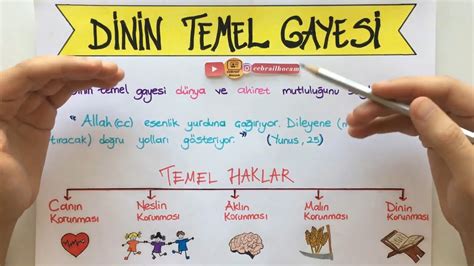 DİNİN TEMEL GAYESİ
cebrailhocam
temel gayesi dünya ve ahiret mutluluğunu
"Allah (cc) esenlik yurduna çağırıyor. Dileyene
doğru yolları gösteriyor." (Yunus, 25)
TEMEL HAKLAR
Canın Korunması
Neslin Korunması
Aklın Korunması
Malın Korunması
Dinin Korunması